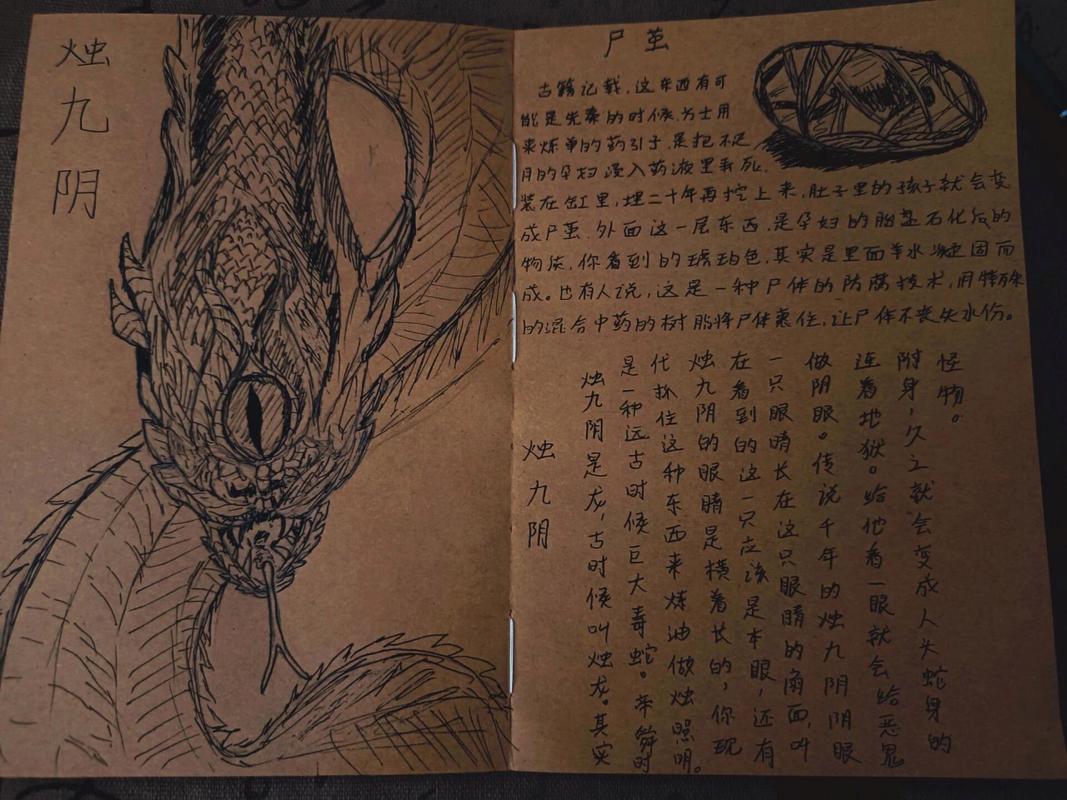 烛
九
阴
尸茧
古籍记载,这东西有可
能是先秦的时候,方士用
来炼单的药引子,是把不足
月的孕妇浸入药液里弄死.
装在缸里,埋二十年再挖上来,肚子里的孩子就会变
成尸茧.外面这一层东西,是孕妇的胎盘石化后的
物质,你看到的琥珀色,其实是里面羊水凝固而
成。也有人说,这是一种尸体的防腐技术,用特殊
的混合中药的树脂将尸体裹住,让尸体不丧失水份。
烛九阴
烛九阴是龙，古时候叫烛龙。其实
是一种远古时候巨大毒蛇。在舜时
代抓住这种东西来炼油做烛照明。
烛九阴的眼睛是横着长的，你现
在看到的这一只应该是本眼，还有
一只眼睛长在这只眼睛的角面，叫
做阴眼。传说千年的烛九阴阴眼
连着地狱。给他看一眼就会给恶鬼
附身，久之就会变成人头蛇身的
怪物。